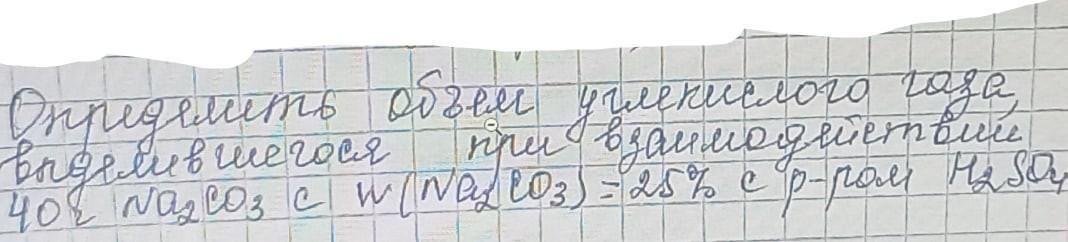 Определить объем углекислого газа,
выделившегося при взаимодействии
40г Na2CO3 с w(Na2CO3)=25% с р-ром H2SO4